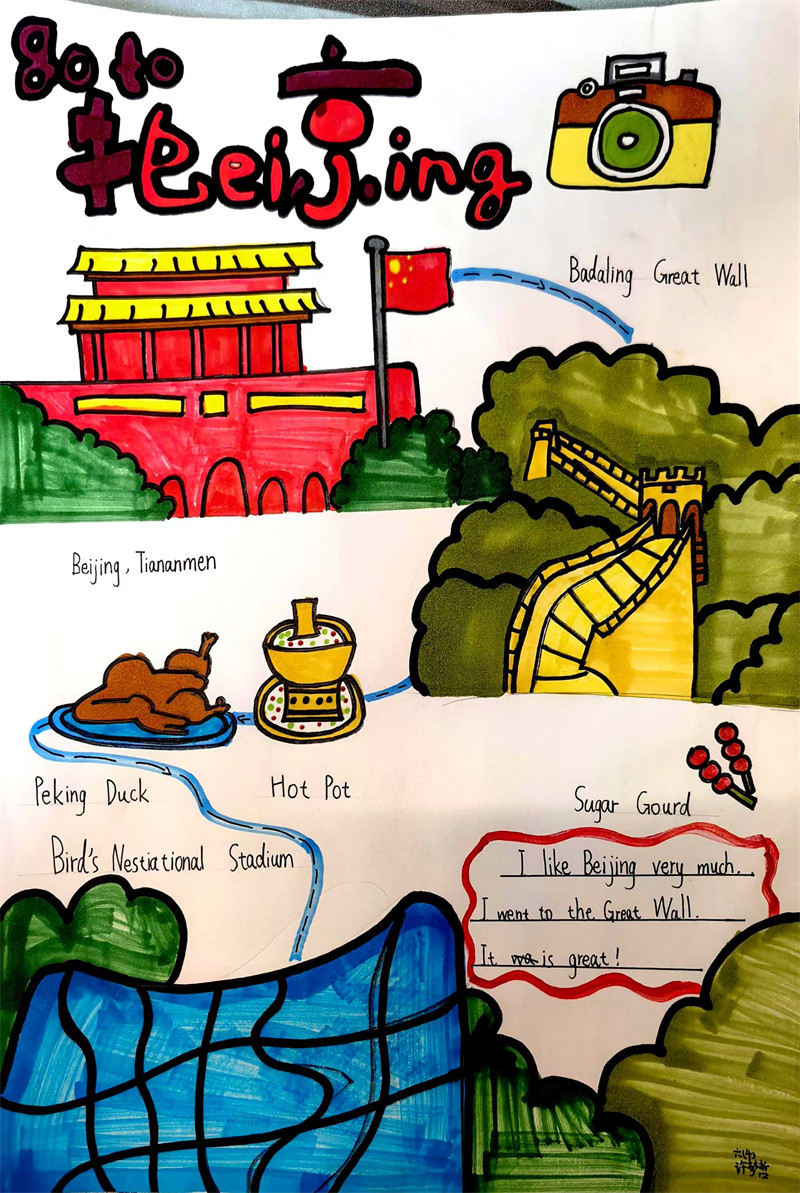 go to
走Beijing京
Badaling Great Wall
Beijing, Tiananmen
Peking Duck
Hot Pot
Sugar Gourd
Bird's Nestiational Stadium
I like Beijing very much.
I went to the Great Wall.
It is great!